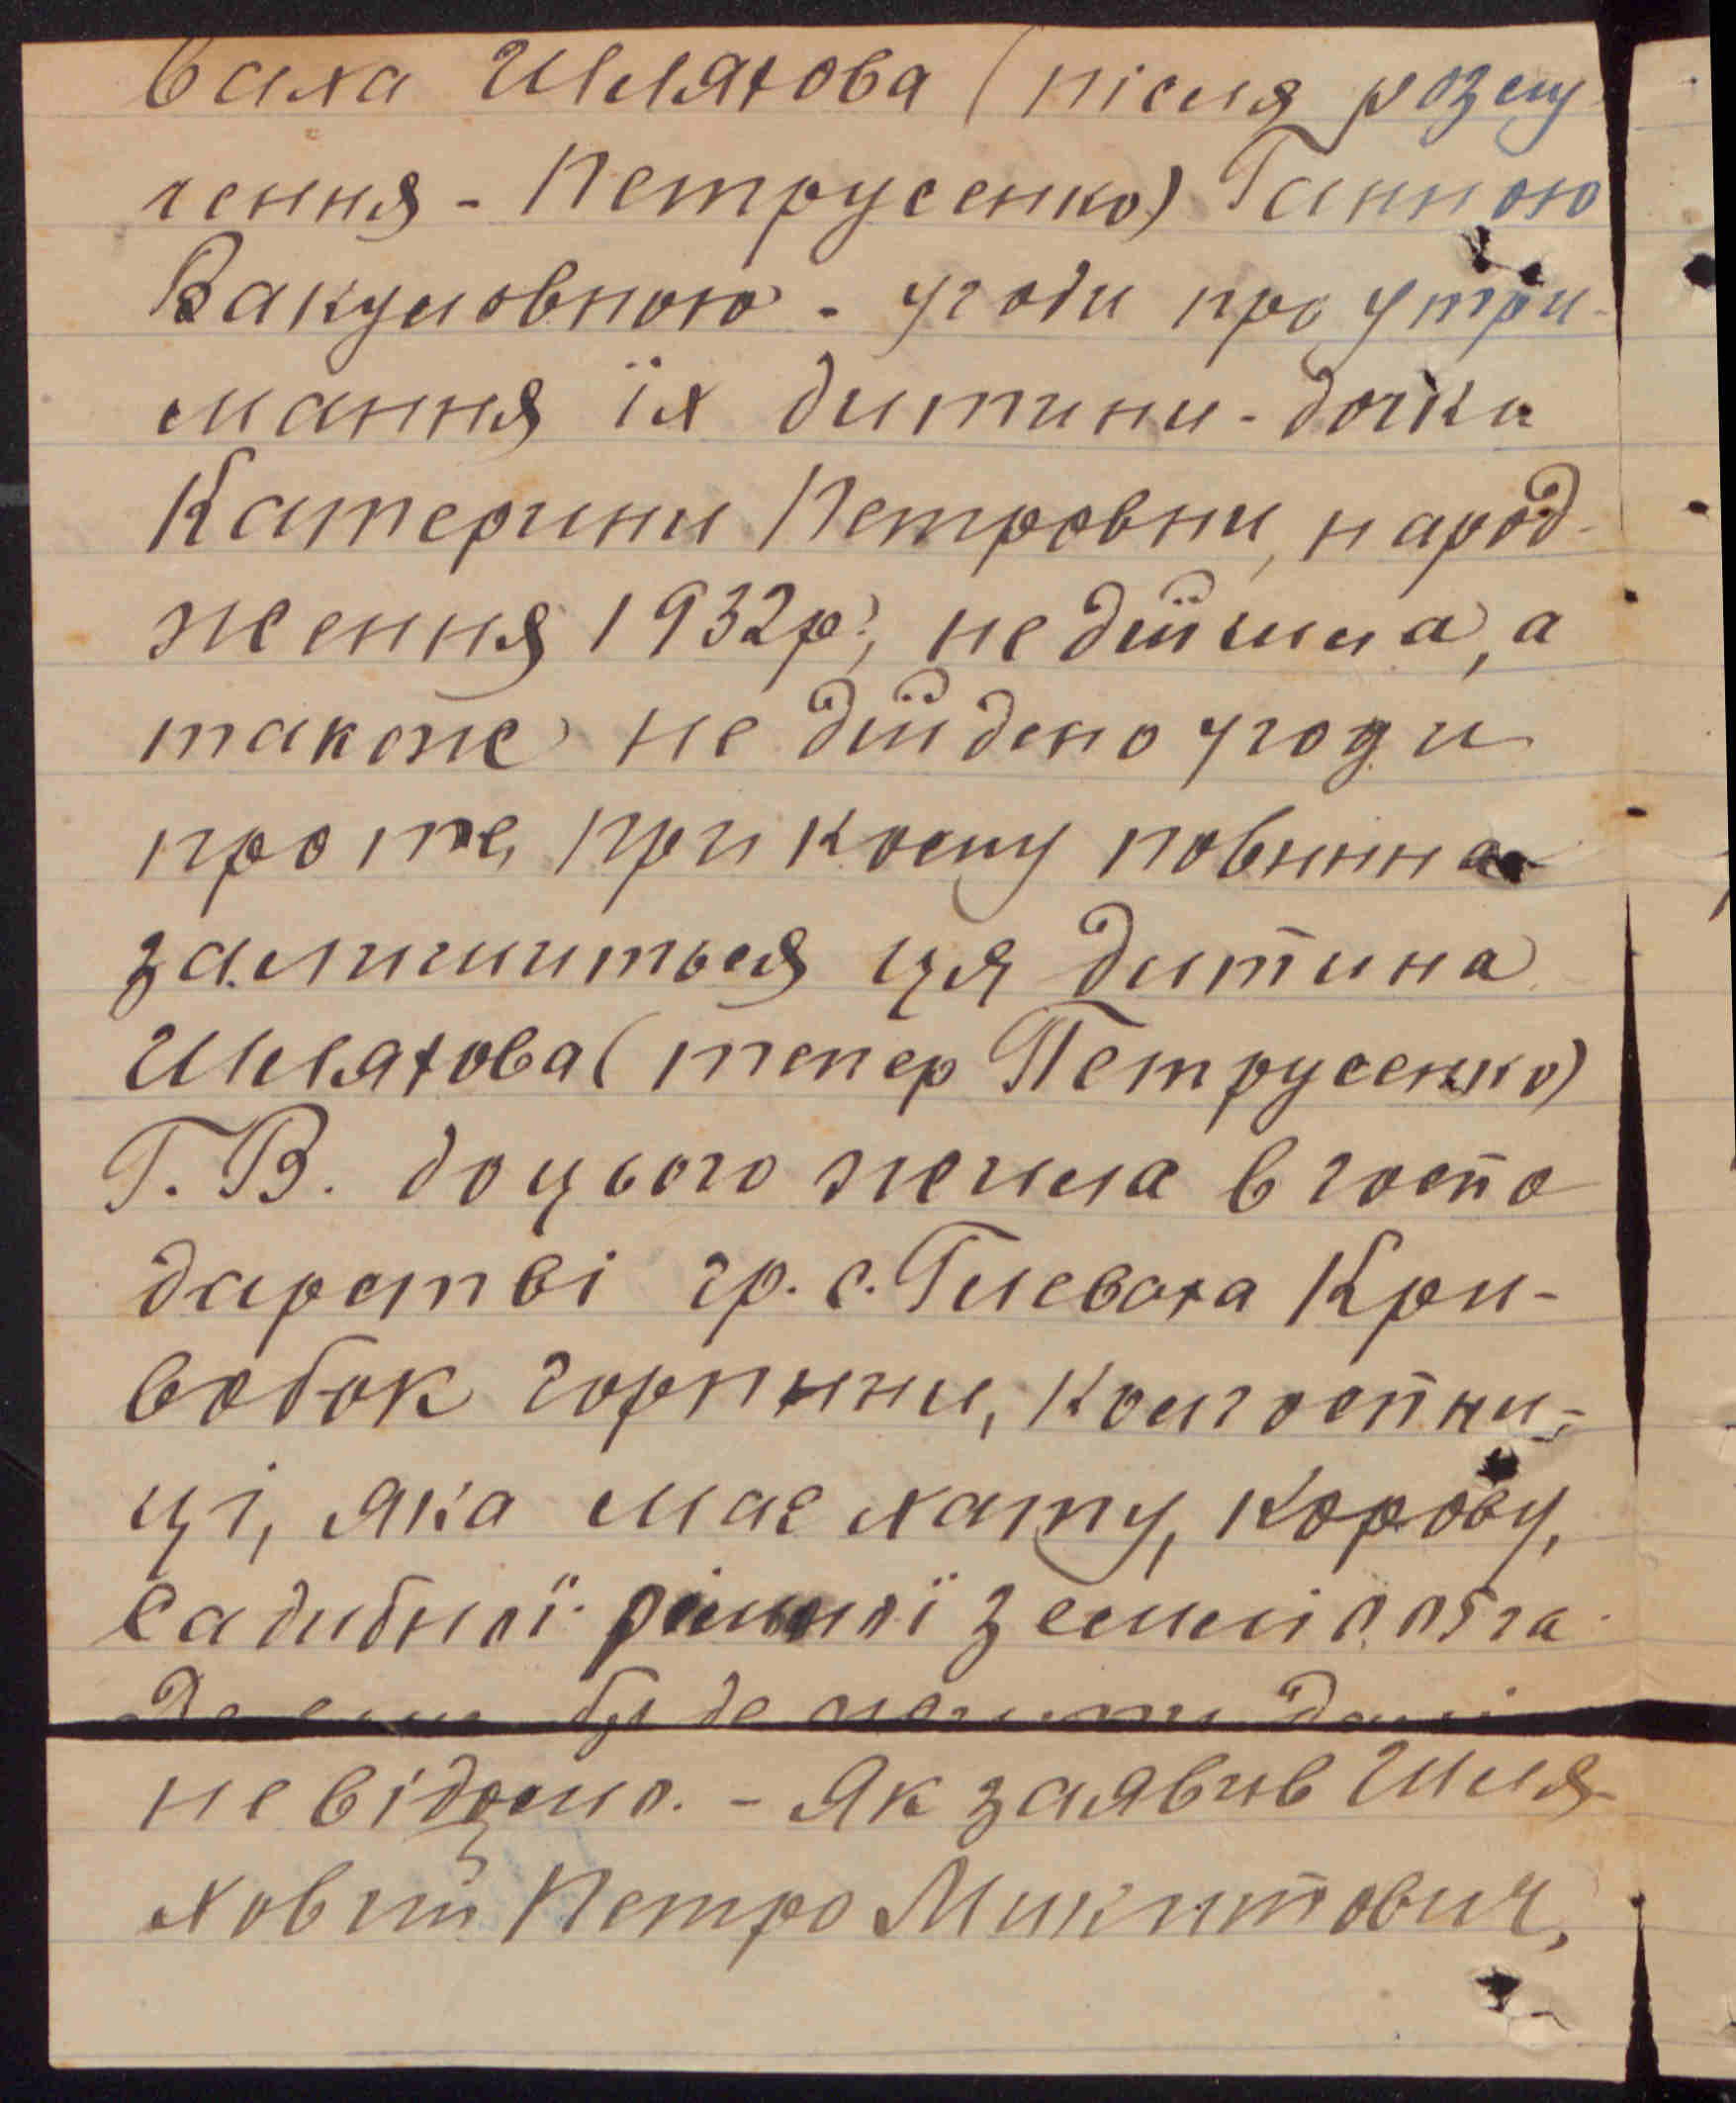 ваха Шляхова (після розлу
чення - Петрусенко) Ганною
Вакуловною - угоди про утри-
мання їх дитини - дочки
Катерини Петровни, народ-
ження 1932р., не дійшла, а
також не дійдено угоди
про те, при кому повинна
залишиться ця дитина
Шляхова (тепер Петрусенко)
Г. В. до цього жила в госпо
дарстві гр. с. Глеваха Кри-
вобок Горпини, колгоспни-
ці, яка має хату, корову,
садибної рільної землі 0.05 га
Де вона буде жити далі
невідомо. - Як заявив Шля-
ховий Петро Микитович,